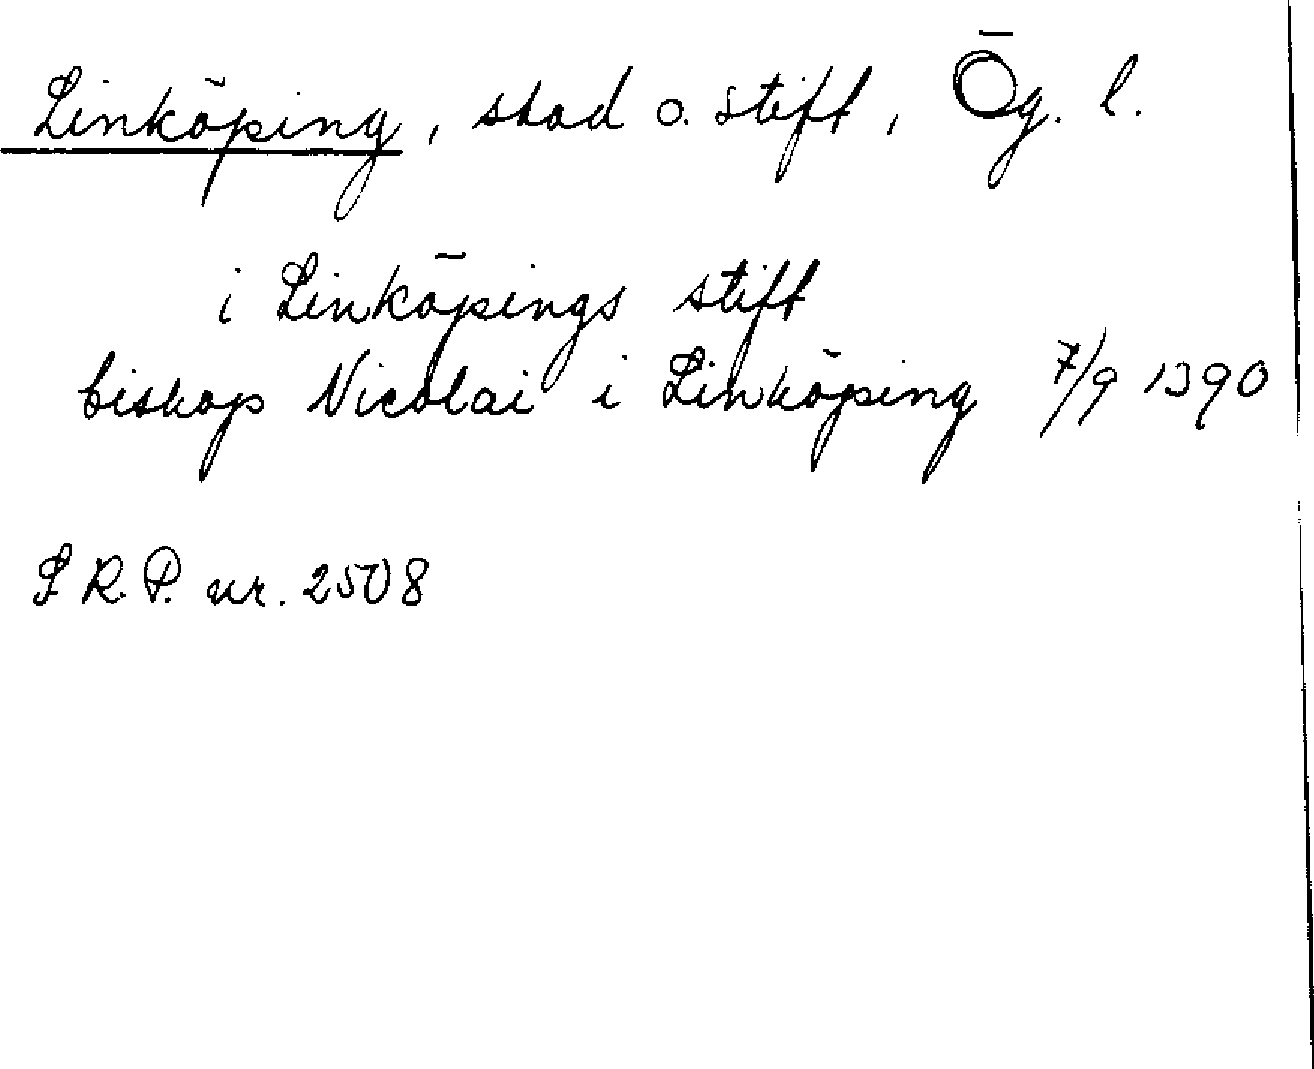 Linköping, stad o. stift, Ög. l.
i Linköpings stift
biskop Nicolai i Linköping 7/9 1390
S. R. P. nr. 2508